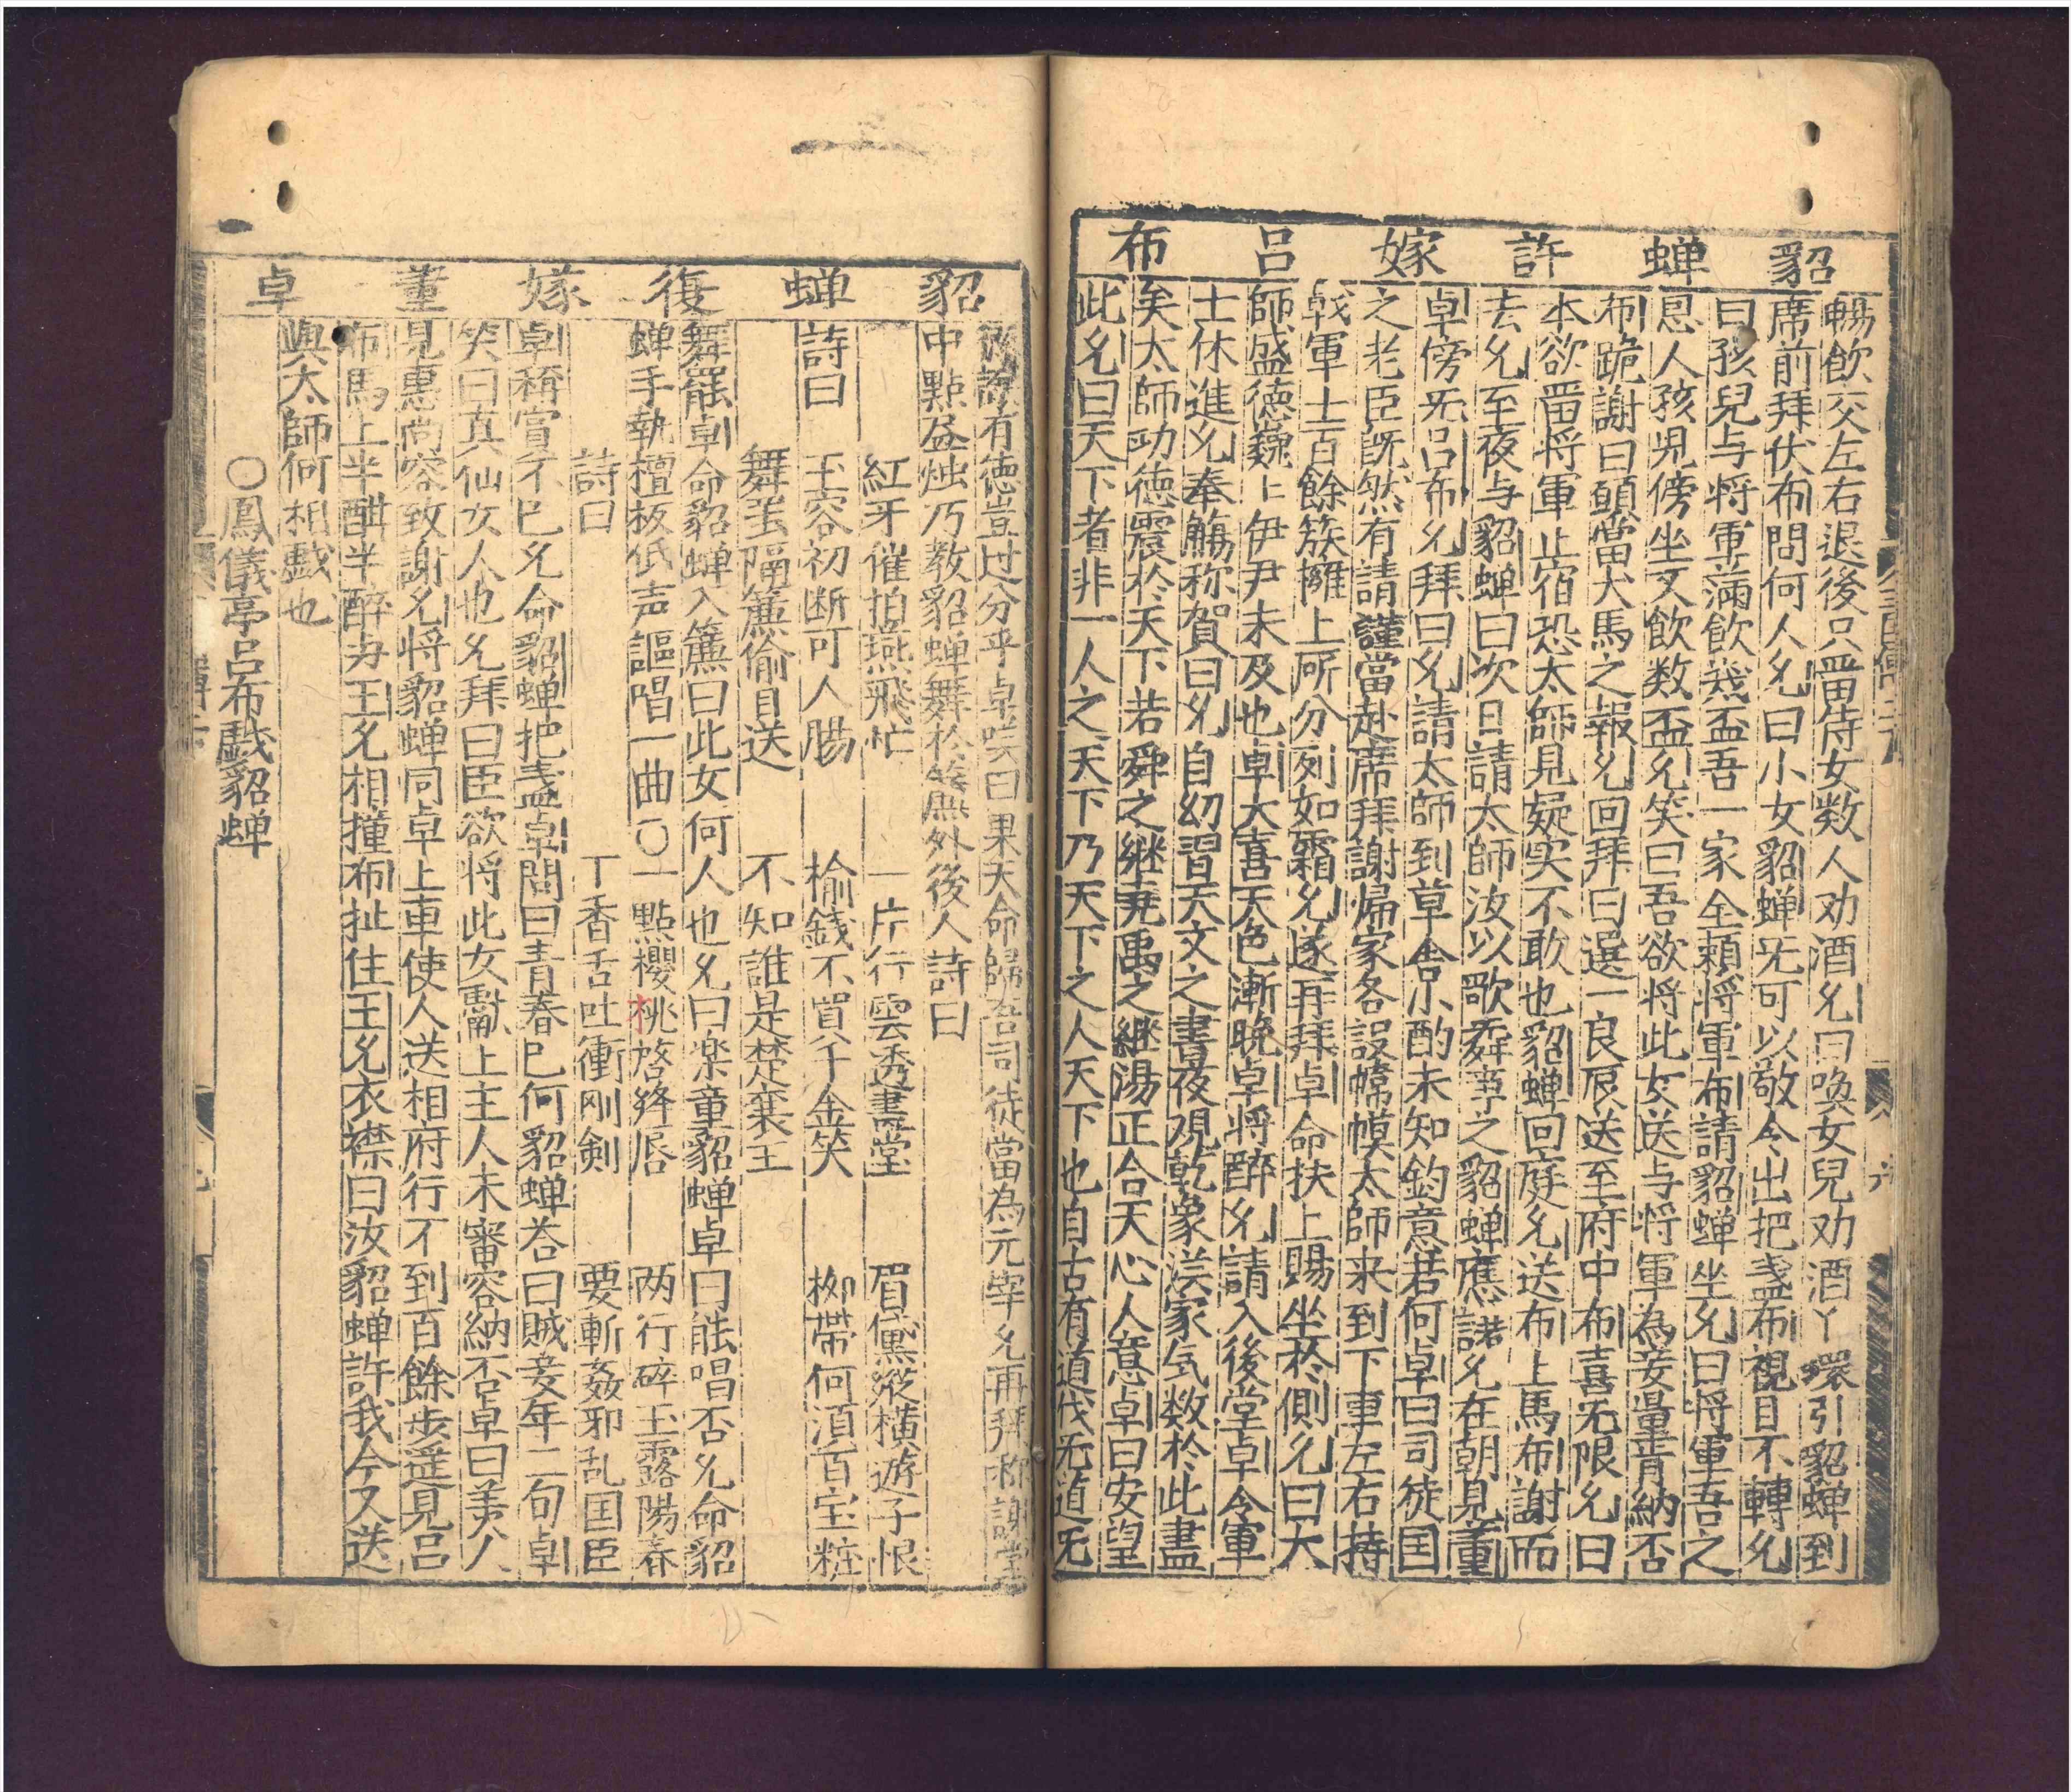 貂蟬許嫁呂布
暢飲交左右退後只畱侍女数人劝酒允曰喚女兒劝酒丫環引貂蟬到
席前拜伏布問何人允曰小女貂蟬旡可以敬令出把盞布視目不轉允
曰孩兒与将軍滿飲幾盃吾一家全頼将軍布請貂蟬坐允曰将軍吾之
恩人孩児傍坐又飲数盃允笑曰吾欲将此女送与将軍為妾量肯納否
布跪謝曰頭當犬馬之報允回拜曰選一良辰送至府中布喜旡限允曰
本欲畱将軍止宿恐太師見疑实不敢也貂蟬回庭允送布上馬布謝而
去允至夜与貂蟬曰次日請太師汝以歌舞事之貂蟬應諾允在朝見董
卓傍旡呂布允拜曰允請太師到草舍小酌未知鈞意若何卓曰司徒国
之老臣既然有請謹當赴席拜謝㷌家各設幃幙太師来到下車左右持
戟軍士百餘簇擁上㕔分列如霜允遂再拜卓命扶上賜坐於側允曰大
師盛德巍〻伊尹未及也卓大喜天色漸晚卓将醉允請入後堂卓令軍
士休進允奉觴称賀曰允自㓜習天文之書夜观乾象漢家気数於此盡
矣太師功德震於天下若舜之継尭禹之継湯正合天心人意卓曰安望
此允曰天下者非一人之天下乃天下之人天下也自古有道伐旡道旡
貂蟬復嫁董卓
有德豈过分乎卓咲曰果天命歸吾司徒當為元宰允再拜称謝堂
中點盈烛乃教貂蟬舞於簾外後人詩曰
紅牙催拍燕飛忙　一片行雲透畫堂　眉黛縱横遊子恨
詩曰　玉容初断可人腸　榆錢不買千金笑　柳帶何須百宝粧
舞罢隔簾偷目送　不知誰是楚襄王
舞罷卓命貂蟬入簾曰此女何人也允曰楽童貂蟬卓曰能唱否允命貂
蟬手執檀板低声謳唱一曲〇一點櫻桃啓絳唇　两行碎玉露陽春
詩曰　丁香舌吐衝刚剣　要斬姦邪乱国臣
卓称賞不已允命貂蟬把盞卓問曰青春已何貂蟬荅曰賊妾年二旬卓
笑曰真仙女人也允拜曰臣欲将此女獻上主人未審容納否卓曰美人
見惠尚容致謝允将貂蟬同卓上車使人送相府行不到百餘步遥見呂
布馬上半酣半醉与王允相撞布扯住王允衣襟曰汝貂蟬許我今又送
與太師何相戱也
〇鳳儀亭呂布戱貂蟬